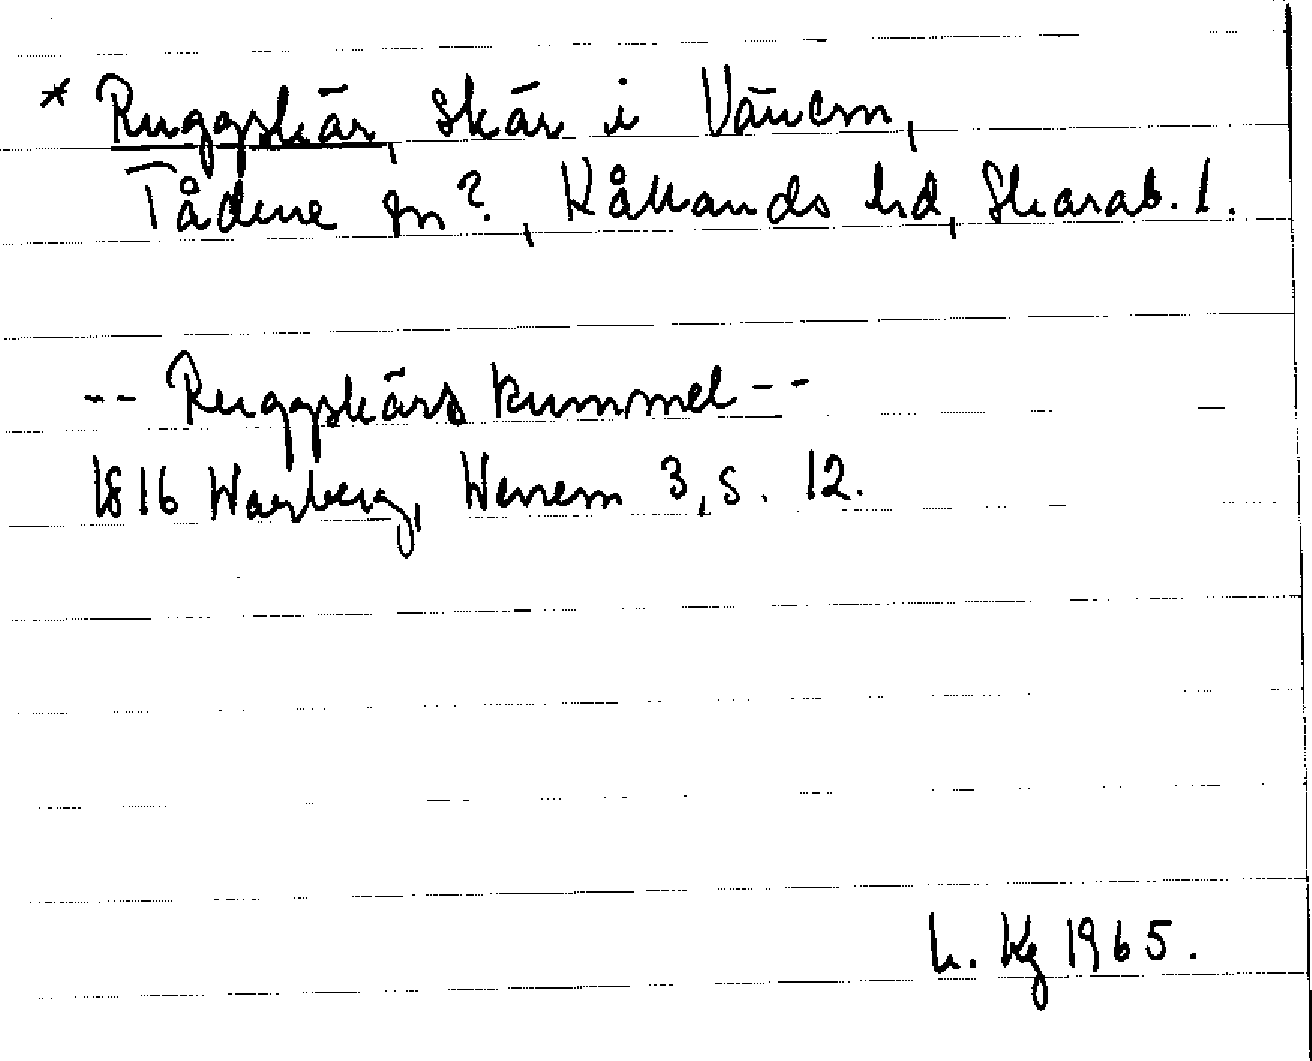 * Ruggskär, skär i Vänern,
Tådene sn?, Kållands hd, Skarab. l.
-- Ruggskärs kummel --
1816 Warberg, Wenern 3, s. 12.
h. Kg 1965.